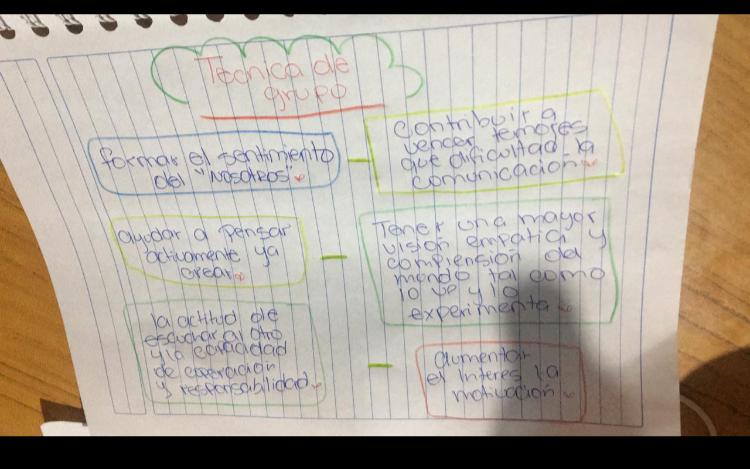 Tecnica de
grupo
formar el sentimiento
del "Nosotros"
Contribuir a
vencer temores
que dificultad la
comunicación
ayudar a pensar
activamente ya
crear
Tener una mayor
visión empatía y
comprensión del
mundo tal como
lo ve y lo
experimenta
la actitud de
escuchar al otro
y la capacidad
de cooperación
y responsabilidad
aumentar
el interes la
motivación